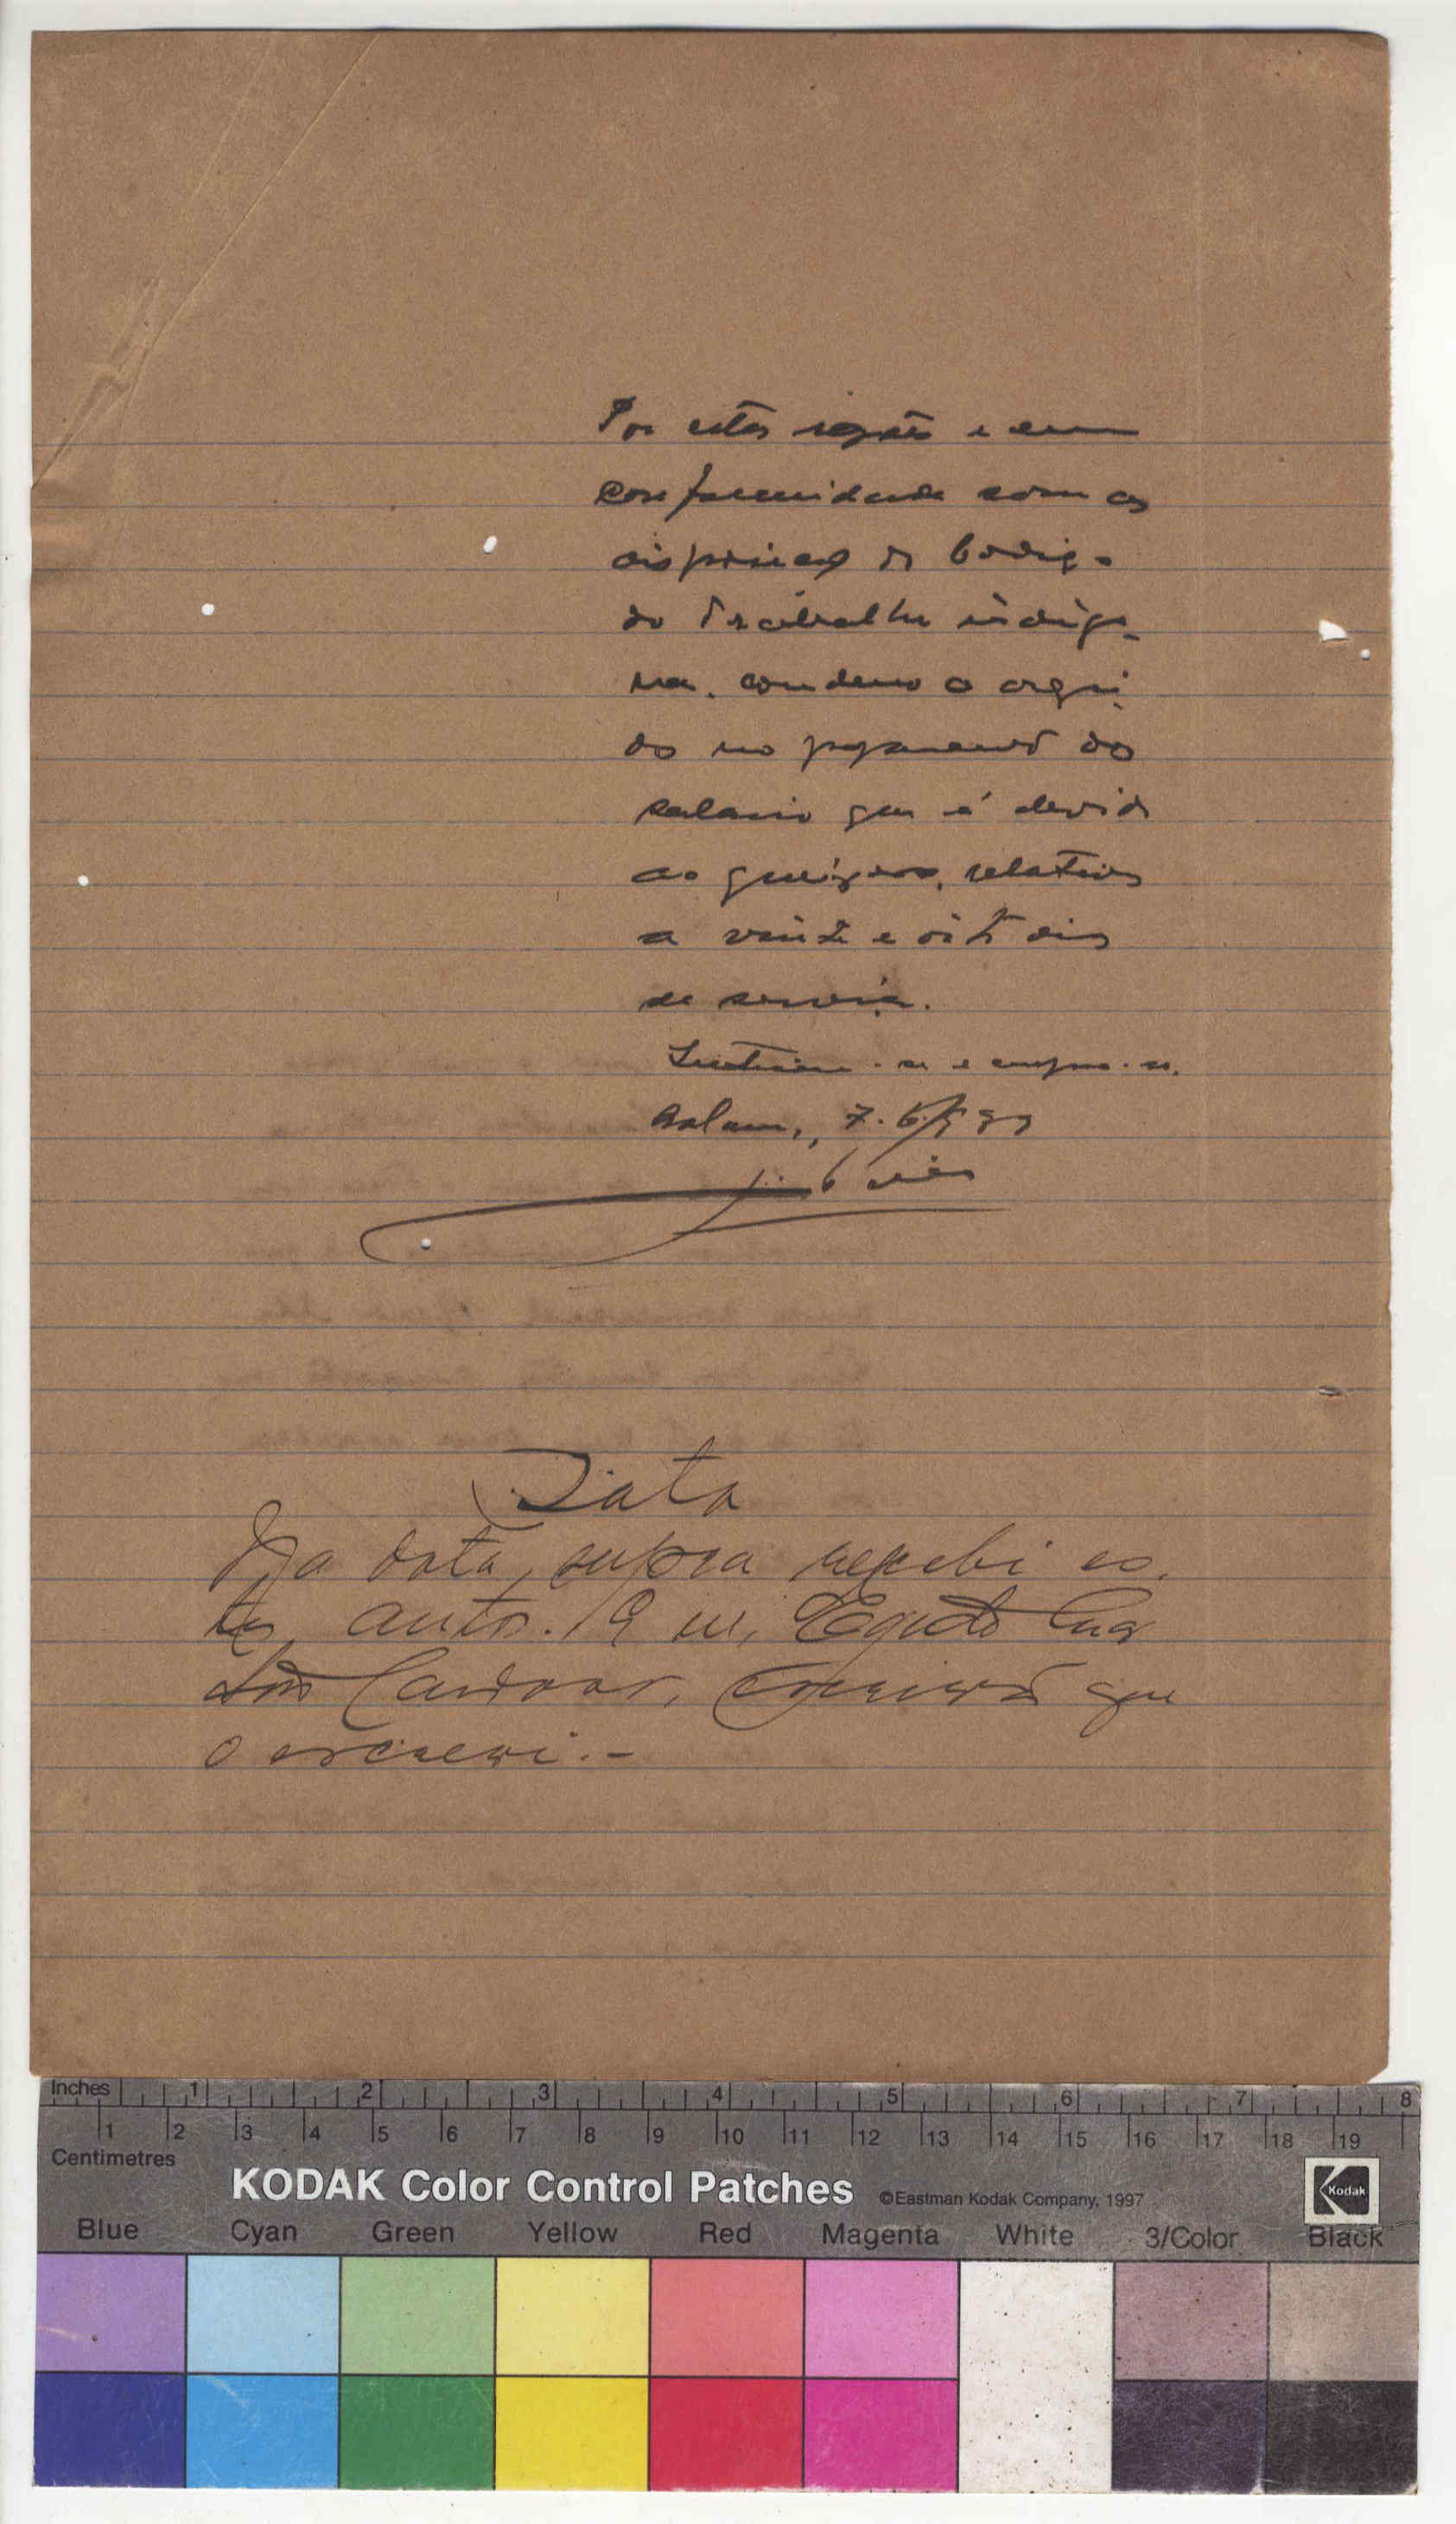 Por estas razões e em
conformidade com as
disposições do Codigo
do Trabalho indige-
na, condeno o argui-
do no pagamento do
salario que é devido
ao queixoso, relativo
a vinte e oito dias
de serviço.
Intime-se e cumpra-se.
7.6.
Data
Na data supra recebi es-
tes autos. E eu, Egidio
que
o escrevi.-
Inches 1 2 3 4 5 6 7 8
1 2 3 4 5 6 7 8 9 10 11 12 13 14 15 16 17 18 19
Centimetres
KODAK Color Control Patches ©Eastman Kodak Company, 1997 Kodak
Blue Cyan Green Yellow Red Magenta White 3/Color Black